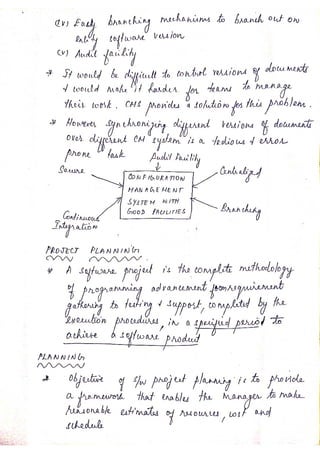 (iv) Easy branching mechanisms to branch out on
entity software version
(v) Audit facility
* It would be difficult to control versions of documents
& would make it harder for teams to manage
their work. CMS provides a solution for this problem.
* However synchronizing different versions of documents
over different CM system is a tedious & error
prone task
Audit Facility
Secure
Centralized
CONFIGURATION
MANAGEMENT
SYSTEM WITH
GOOD FACILITIES
Continuous
Integration
Branching
PROJECT PLANNING
* A software project is the complete methodology
of programming advancement from requirement
gathering to testing & support, completed by the
execution procedures, in a specified period to
achieve a software product
PLANNING
* Objective of s/w project planning is to provide
a framework that enables the manager to make
reasonable estimates of resources, cost and
schedule